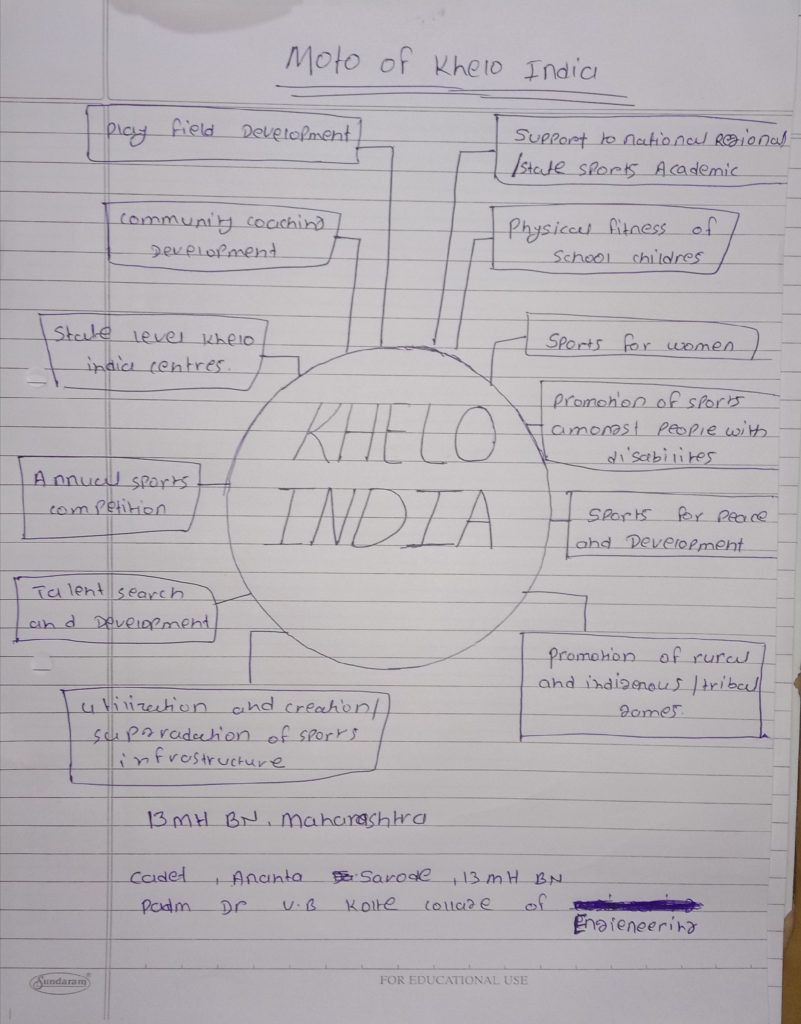 Moto of Khelo India
Play field Development
Support to national Regional
/state sports Academic
Community coaching
Development
Physical fitness of
School childres
State level khelo
india centres.
Sports for women
KHELO
INDIA
Promotion of sports
amongst people with
disabilites
Annual sports
competition
Sports for peace
and Development
Talent search
and Development
Promotion of rural
and indigenous/tribal
games.
utilization and creation/
supgradation of sports
infrostructure
13 MH BN, Maharashtra
Cadet, Ananta Sarode, 13 MH BN
Padm Dr V.B Kolte collage of
Engieneering
Sundaram®
FOR EDUCATIONAL USE